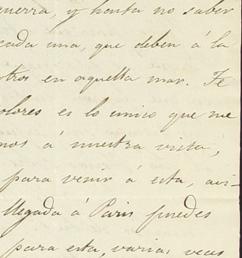 guerra, y hasta no saber
cada una, que deben á la
otros en aquella mar. Te
olores es lo unico que me
mos á nuestra vista,
para venir á esta, avi-
llegada á Paris puedes
para esta, varias veces